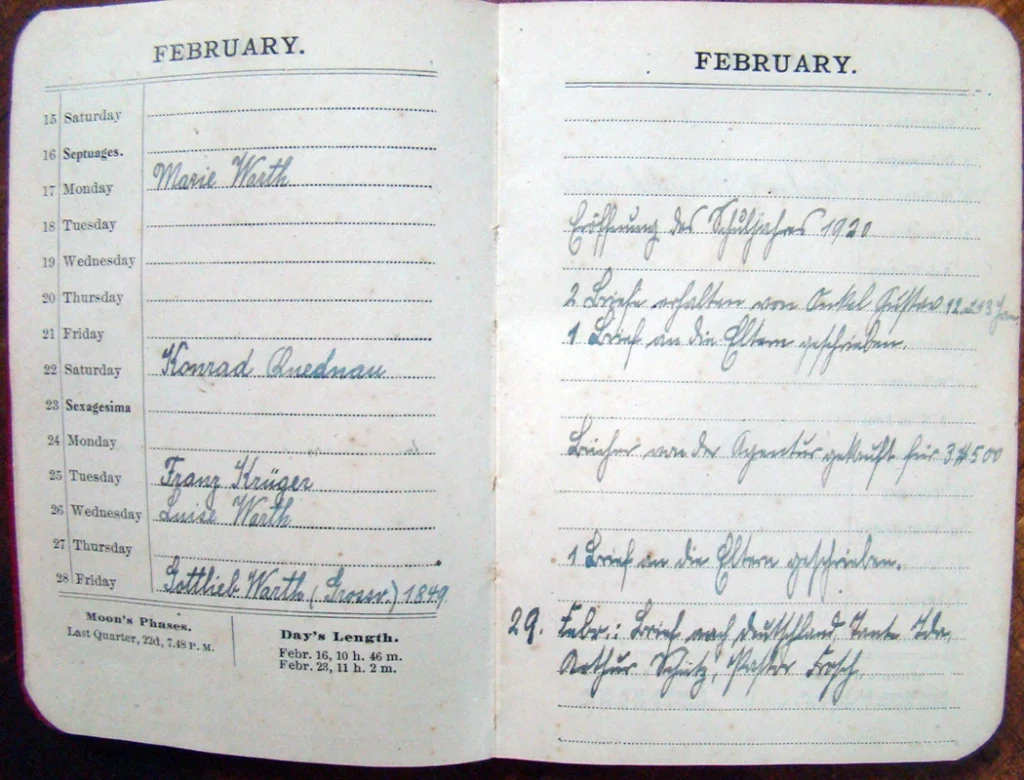 FEBRUARY.
15 Saturday
16 Septuages.
17 Monday Marie Warth
18 Tuesday
19 Wednesday
20 Thursday
21 Friday
22 Saturday Konrad Quednau
23 Sexagesima
24 Monday
25 Tuesday Franz Krüger
26 Wednesday Luise Warth
27 Thursday
28 Friday Gottlieb Warth (Grossv.) 1849
Moon's Phases.
Last Quarter, 22d, 7.48 P. M.
Day's Length.
Febr. 16, 10 h. 46 m.
Febr. 23, 11 h. 2 m.
FEBRUARY.
Eröffnung des Schuljahres 1920
2 Briefe erhalten von Onkel Gustav 12 + 13 Jan
1 Brief an die Eltern geschrieben.
Bücher von der Agentur gekauft für 3$500
1 Brief an die Eltern geschrieben.
29. Febr.: Brief nach Deutschland, Tante Ida,
Arthur Schütz, Pastor Frosch.